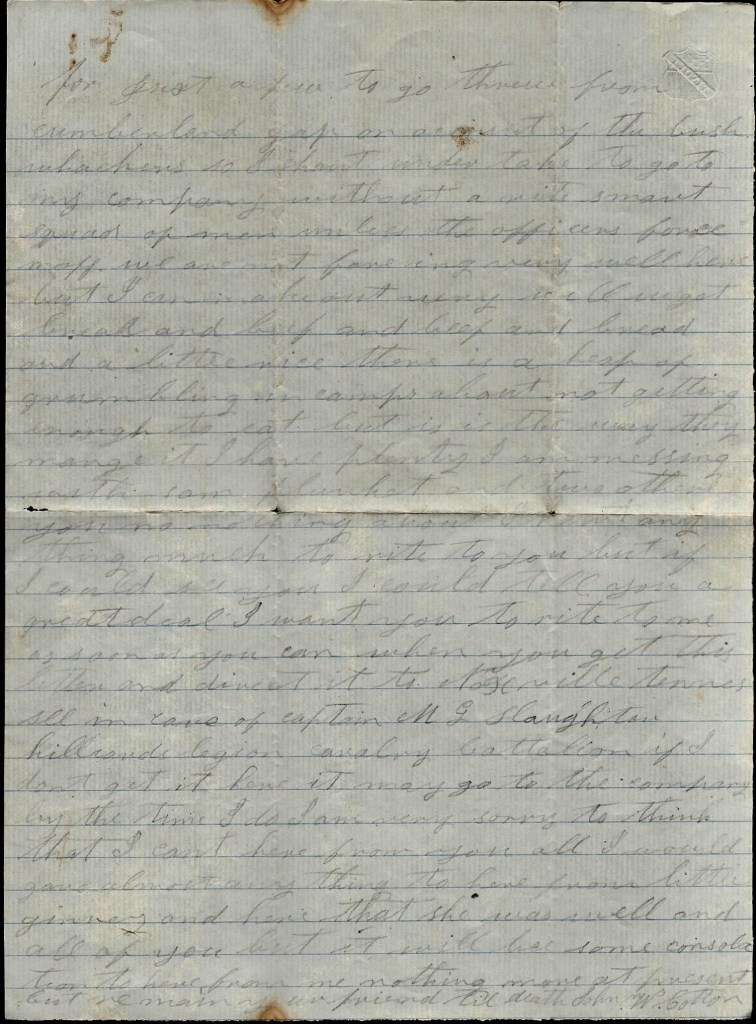 for just a few to go threw from
cumberland gap on account of the bush
whackers so I shant under take to go to
my company without a rite smart
squad of men unless the officers force
me off we are not fareing very well here
but I can do about very well we get
bread and beef and beef and bread
and a little rice there is a heap of
grumbling in camps about not getting
enough to eat but is is the way they
mange it I have plenty I am messing
with sam plunket and two others
you no nothing about I havent any
thing much to rite to you but if
I could see you I could tell you a
great deal I want you to rite to me
as soon as you can when you get this
letter and direct it to Noxville tennes
see in care of captain M G Slaughter
hilliards legion cavalry battalion if I
dont get it here it may go to the company
by the time I do I am very sorry to think
that I cant here from you all I would
gave almost any thing to here from little
ginney and here that she was well and
all of you but it will bee some consola
tion to here from me nothing more at present
but remain your friend til death John W. Cotton